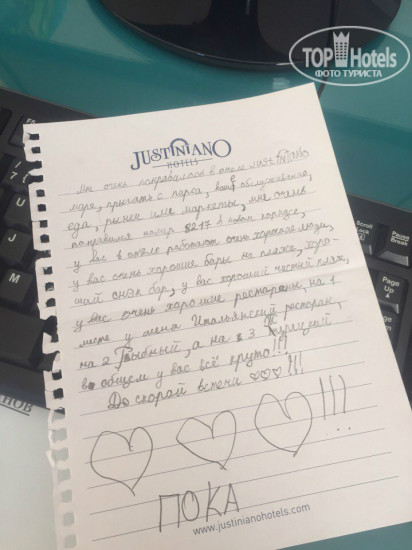 TOP Hotels
ФОТО ТУРИСТА
JUSTINIANO
HOTELS
Мне очень понравилось в отеле JUSTINIANO
море, прыгать с пирса, ваше обслуживание,
еда, рынки или маркеты, мне очень
понравился номер 8217 в новом корпусе,
у вас в отеле работают очень хорошие люди,
у вас очень хорошие бары на пляже, хоро-
ший снэк бар, у вас хороший чистый пляж,
у вас очень хорошие рестораны, на 1
месте у меня Итальянский ресторан,
на 2 Рыбный, а на 3 Турецкий
в общем у вас всё круто!!!
До скорай встечи !!!
!!!
ПОКА
www.justinianohotels.com
Scroll
Lock
Pause
Break
Insert
Home
Delete
End
НОВ